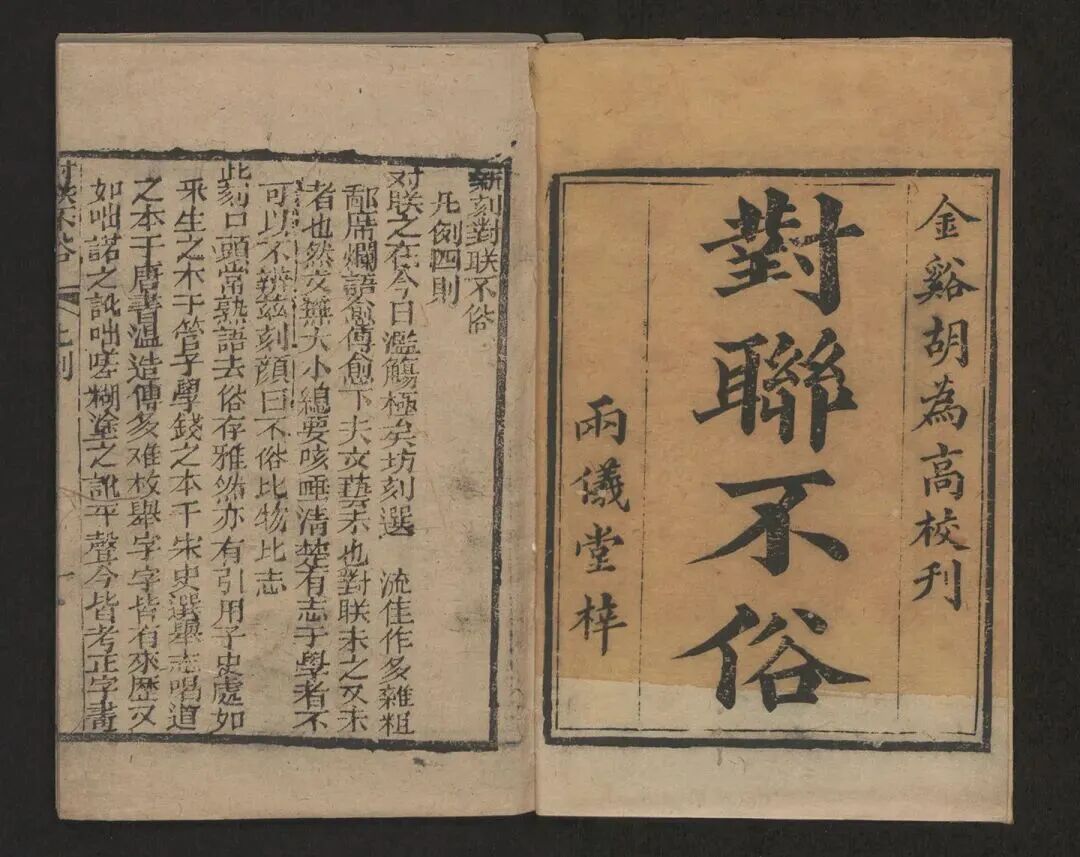 金谿胡為高校刊
對聯不俗
兩儀堂梓
新刻對联不俗
凡例四則
对联之在今日濫觴極矣坊刻選 流佳作多雜粗
鄙席爛語愈傳愈下夫文藝末也對联末之又末
者也然文無大小總要咳唾清楚有志于學者不
可以不辨兹刻顔曰不俗比物比志
此刻口頭常熟語去俗存雅然亦有引用子史處如
生之木于管子學錢之本于宋史選舉志唱道
之本于唐書温造傳多难枚舉字字皆有來歷又
如咄諾之訛咄嗟糊塗之訛平聲今皆考正字畫
不俗